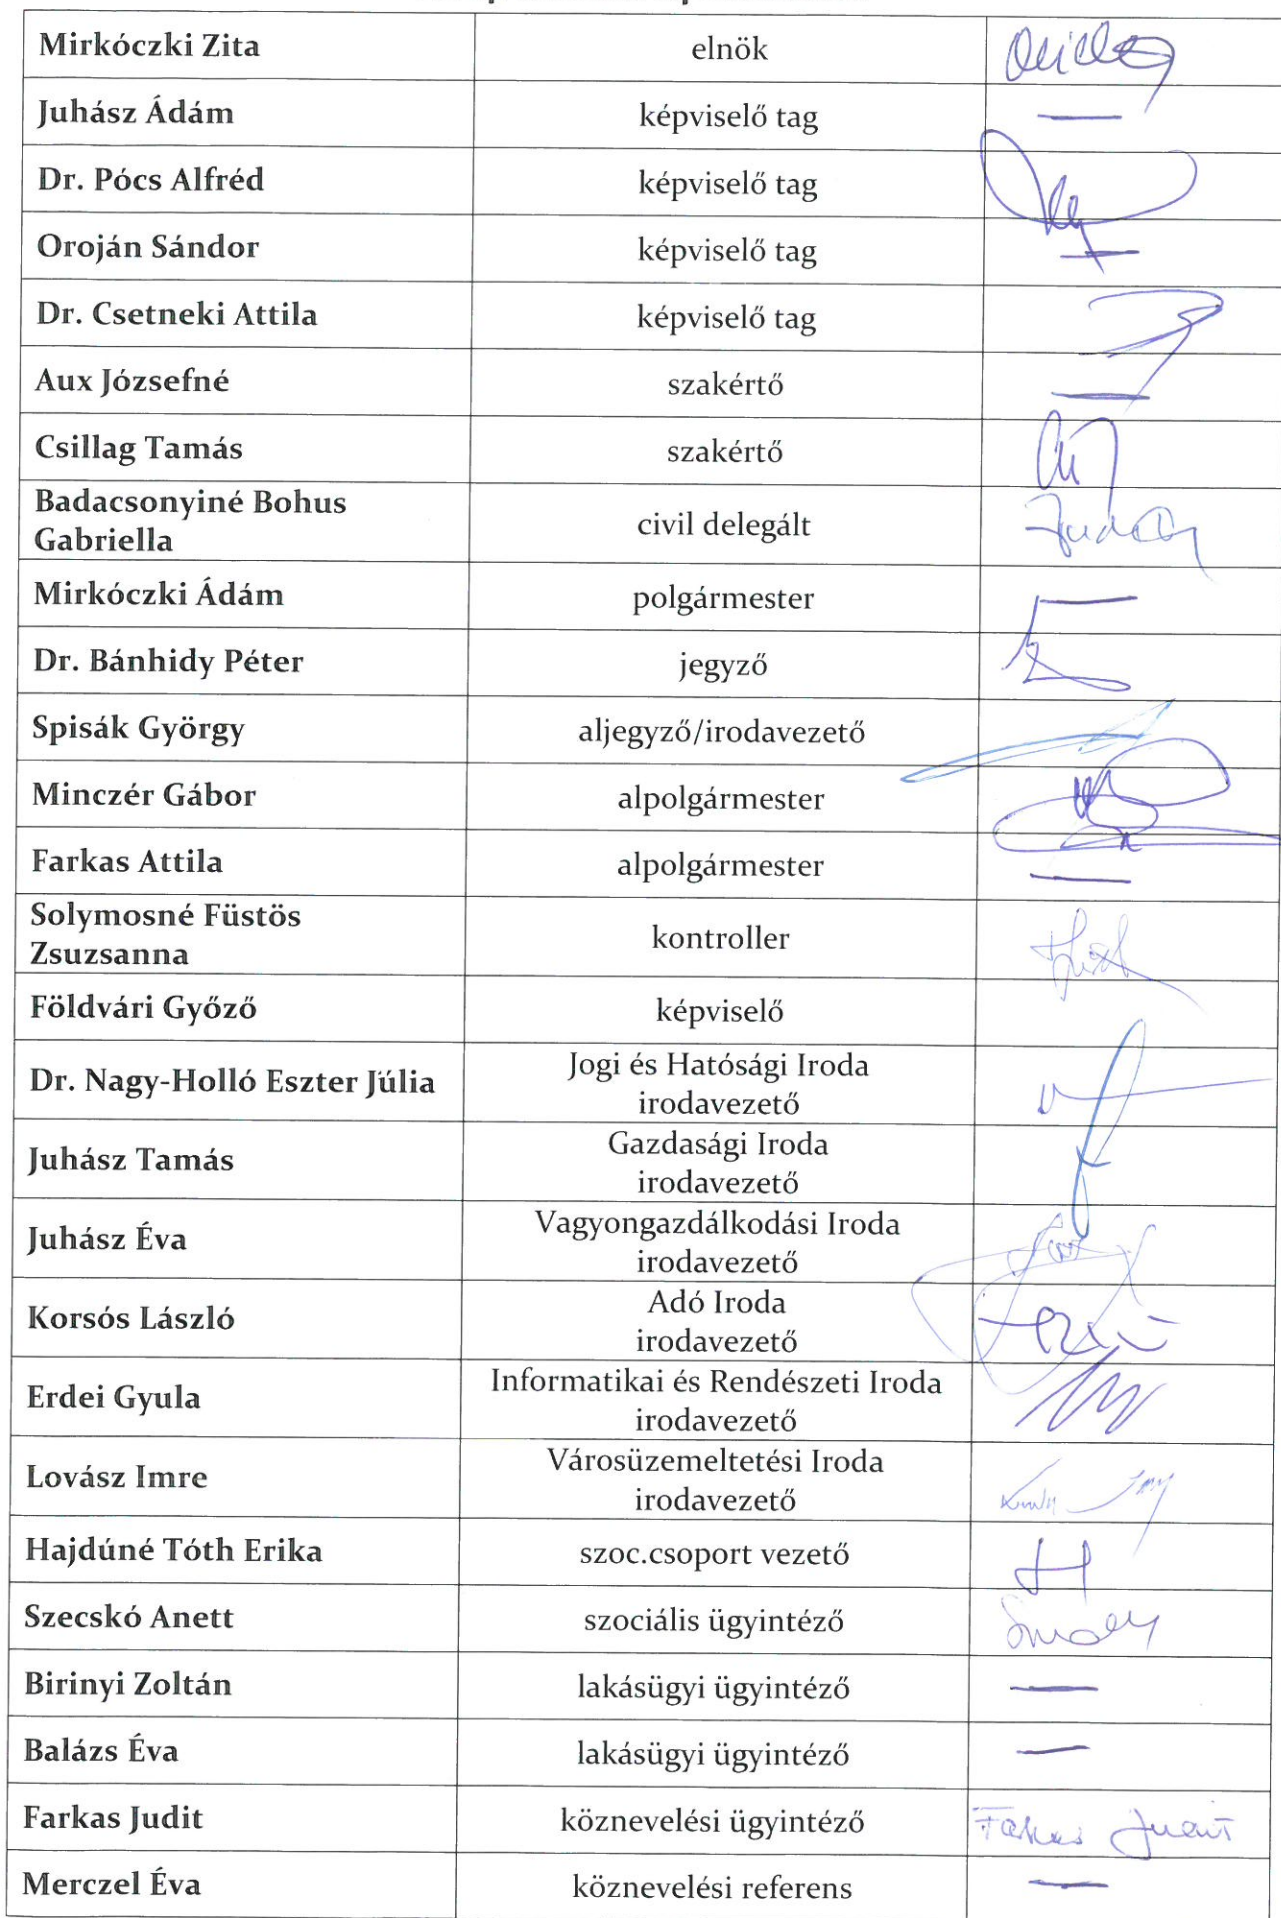 Mirkóczki Zita elnök
Juhász Ádám képviselő tag —
Dr. Pócs Alfréd képviselő tag
Oroján Sándor képviselő tag —
Dr. Csetneki Attila képviselő tag
Aux Józsefné szakértő —
Csillag Tamás szakértő
Badacsonyiné Bohus
Gabriella civil delegált
Mirkóczki Ádám polgármester —
Dr. Bánhidy Péter jegyző
Spisák György aljegyző/irodavezető
Minczér Gábor alpolgármester
Farkas Attila alpolgármester —
Solymosné Füstös
Zsuzsanna kontroller
Földvári Győző képviselő
Dr. Nagy-Holló Eszter Júlia Jogi és Hatósági Iroda
irodavezető
Juhász Tamás Gazdasági Iroda
irodavezető
Juhász Éva Vagyongazdálkodási Iroda
irodavezető
Korsós László Adó Iroda
irodavezető
Erdei Gyula Informatikai és Rendészeti Iroda
irodavezető
Lovász Imre Városüzemeltetési Iroda
irodavezető
Hajdúné Tóth Erika szoc.csoport vezető
Szecskó Anett szociális ügyintéző
Birinyi Zoltán lakásügyi ügyintéző —
Balázs Éva lakásügyi ügyintéző —
Farkas Judit köznevelési ügyintéző Farkas Judit
Merczel Éva köznevelési referens —